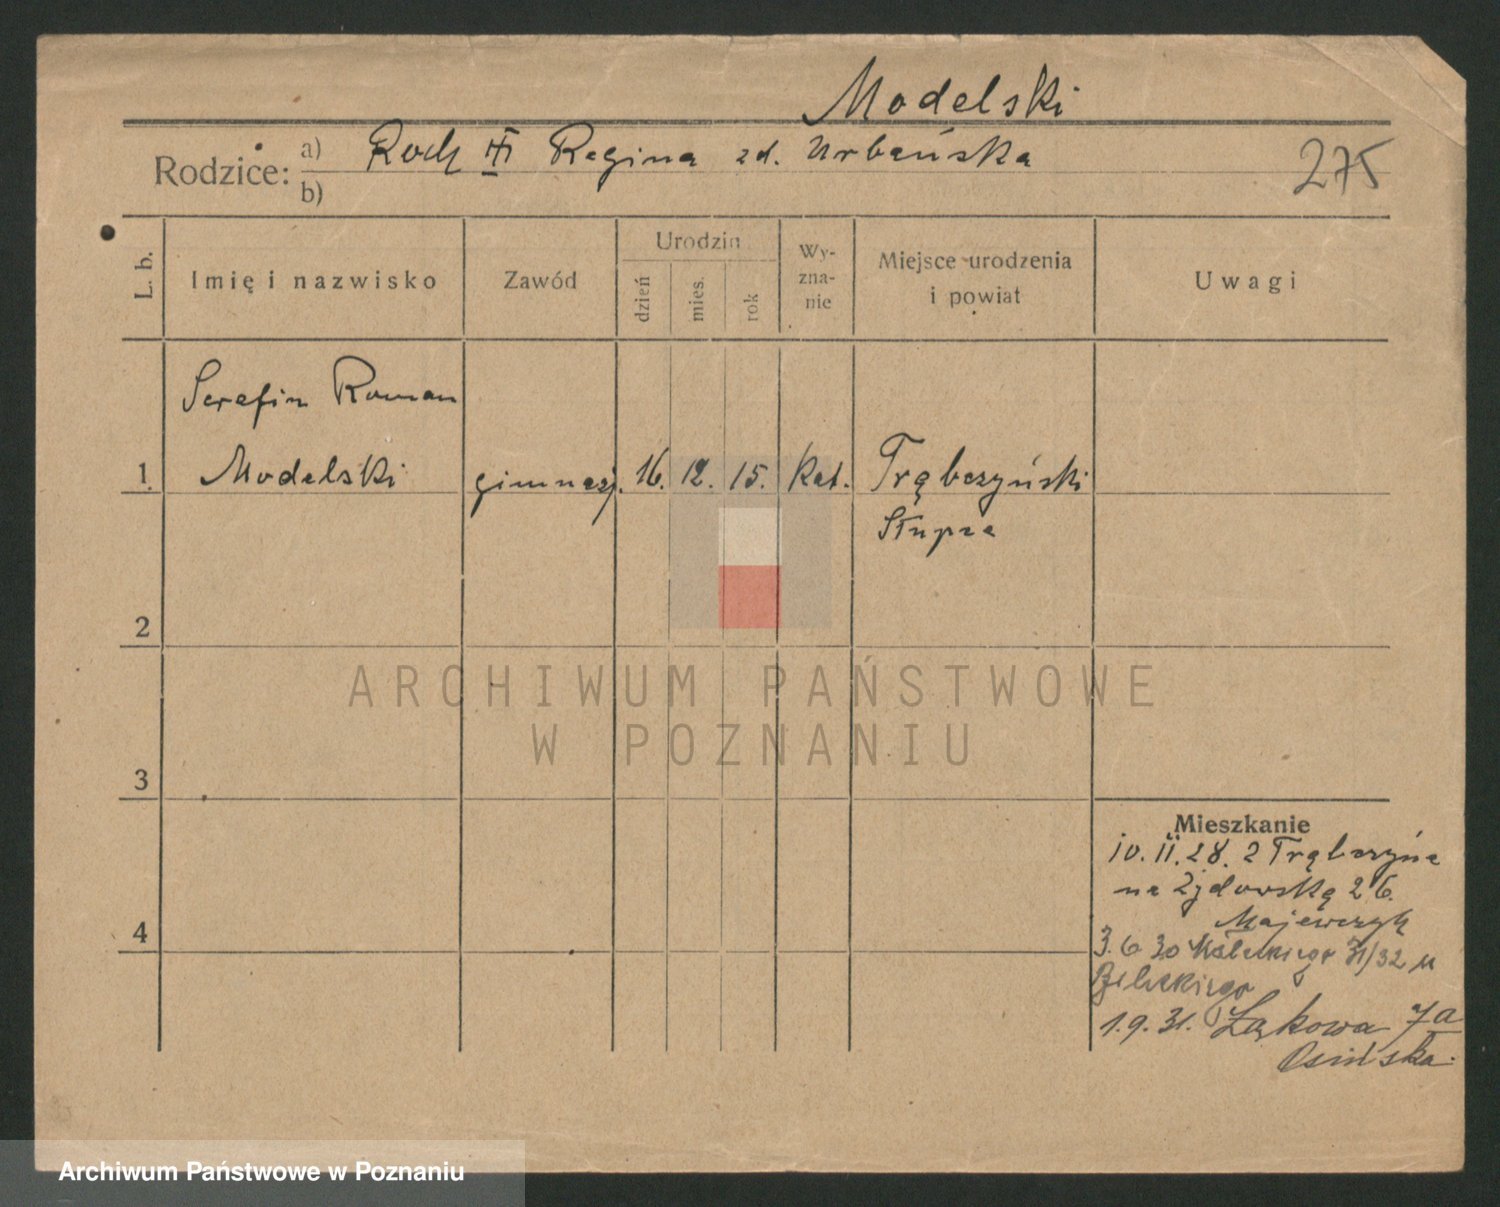 Modelski
Rodzice: a) Roch Regina zd. Urbańska
b)
275
L. b.
Imię i nazwisko
Zawód
Urodzin
dzień
mies.
rok
Wy-
zna-
nie
Miejsce urodzenia
i powiat
Uwagi
Serafin Roman
1. Modelski gimnazj. 16. 12. 15. Kat. Trąbczyński
Słupca
2
ARCHIWUM PAŃSTWOWE
W POZNANIU
3
Mieszkanie
10.11.28. z Trąbczyna
na Żydowską 26.
4
Majewczyk
3.6.30 31/32 u
1.9.31. Łąkowa 7a
Osińska.
Archiwum Państwowe w Poznaniu